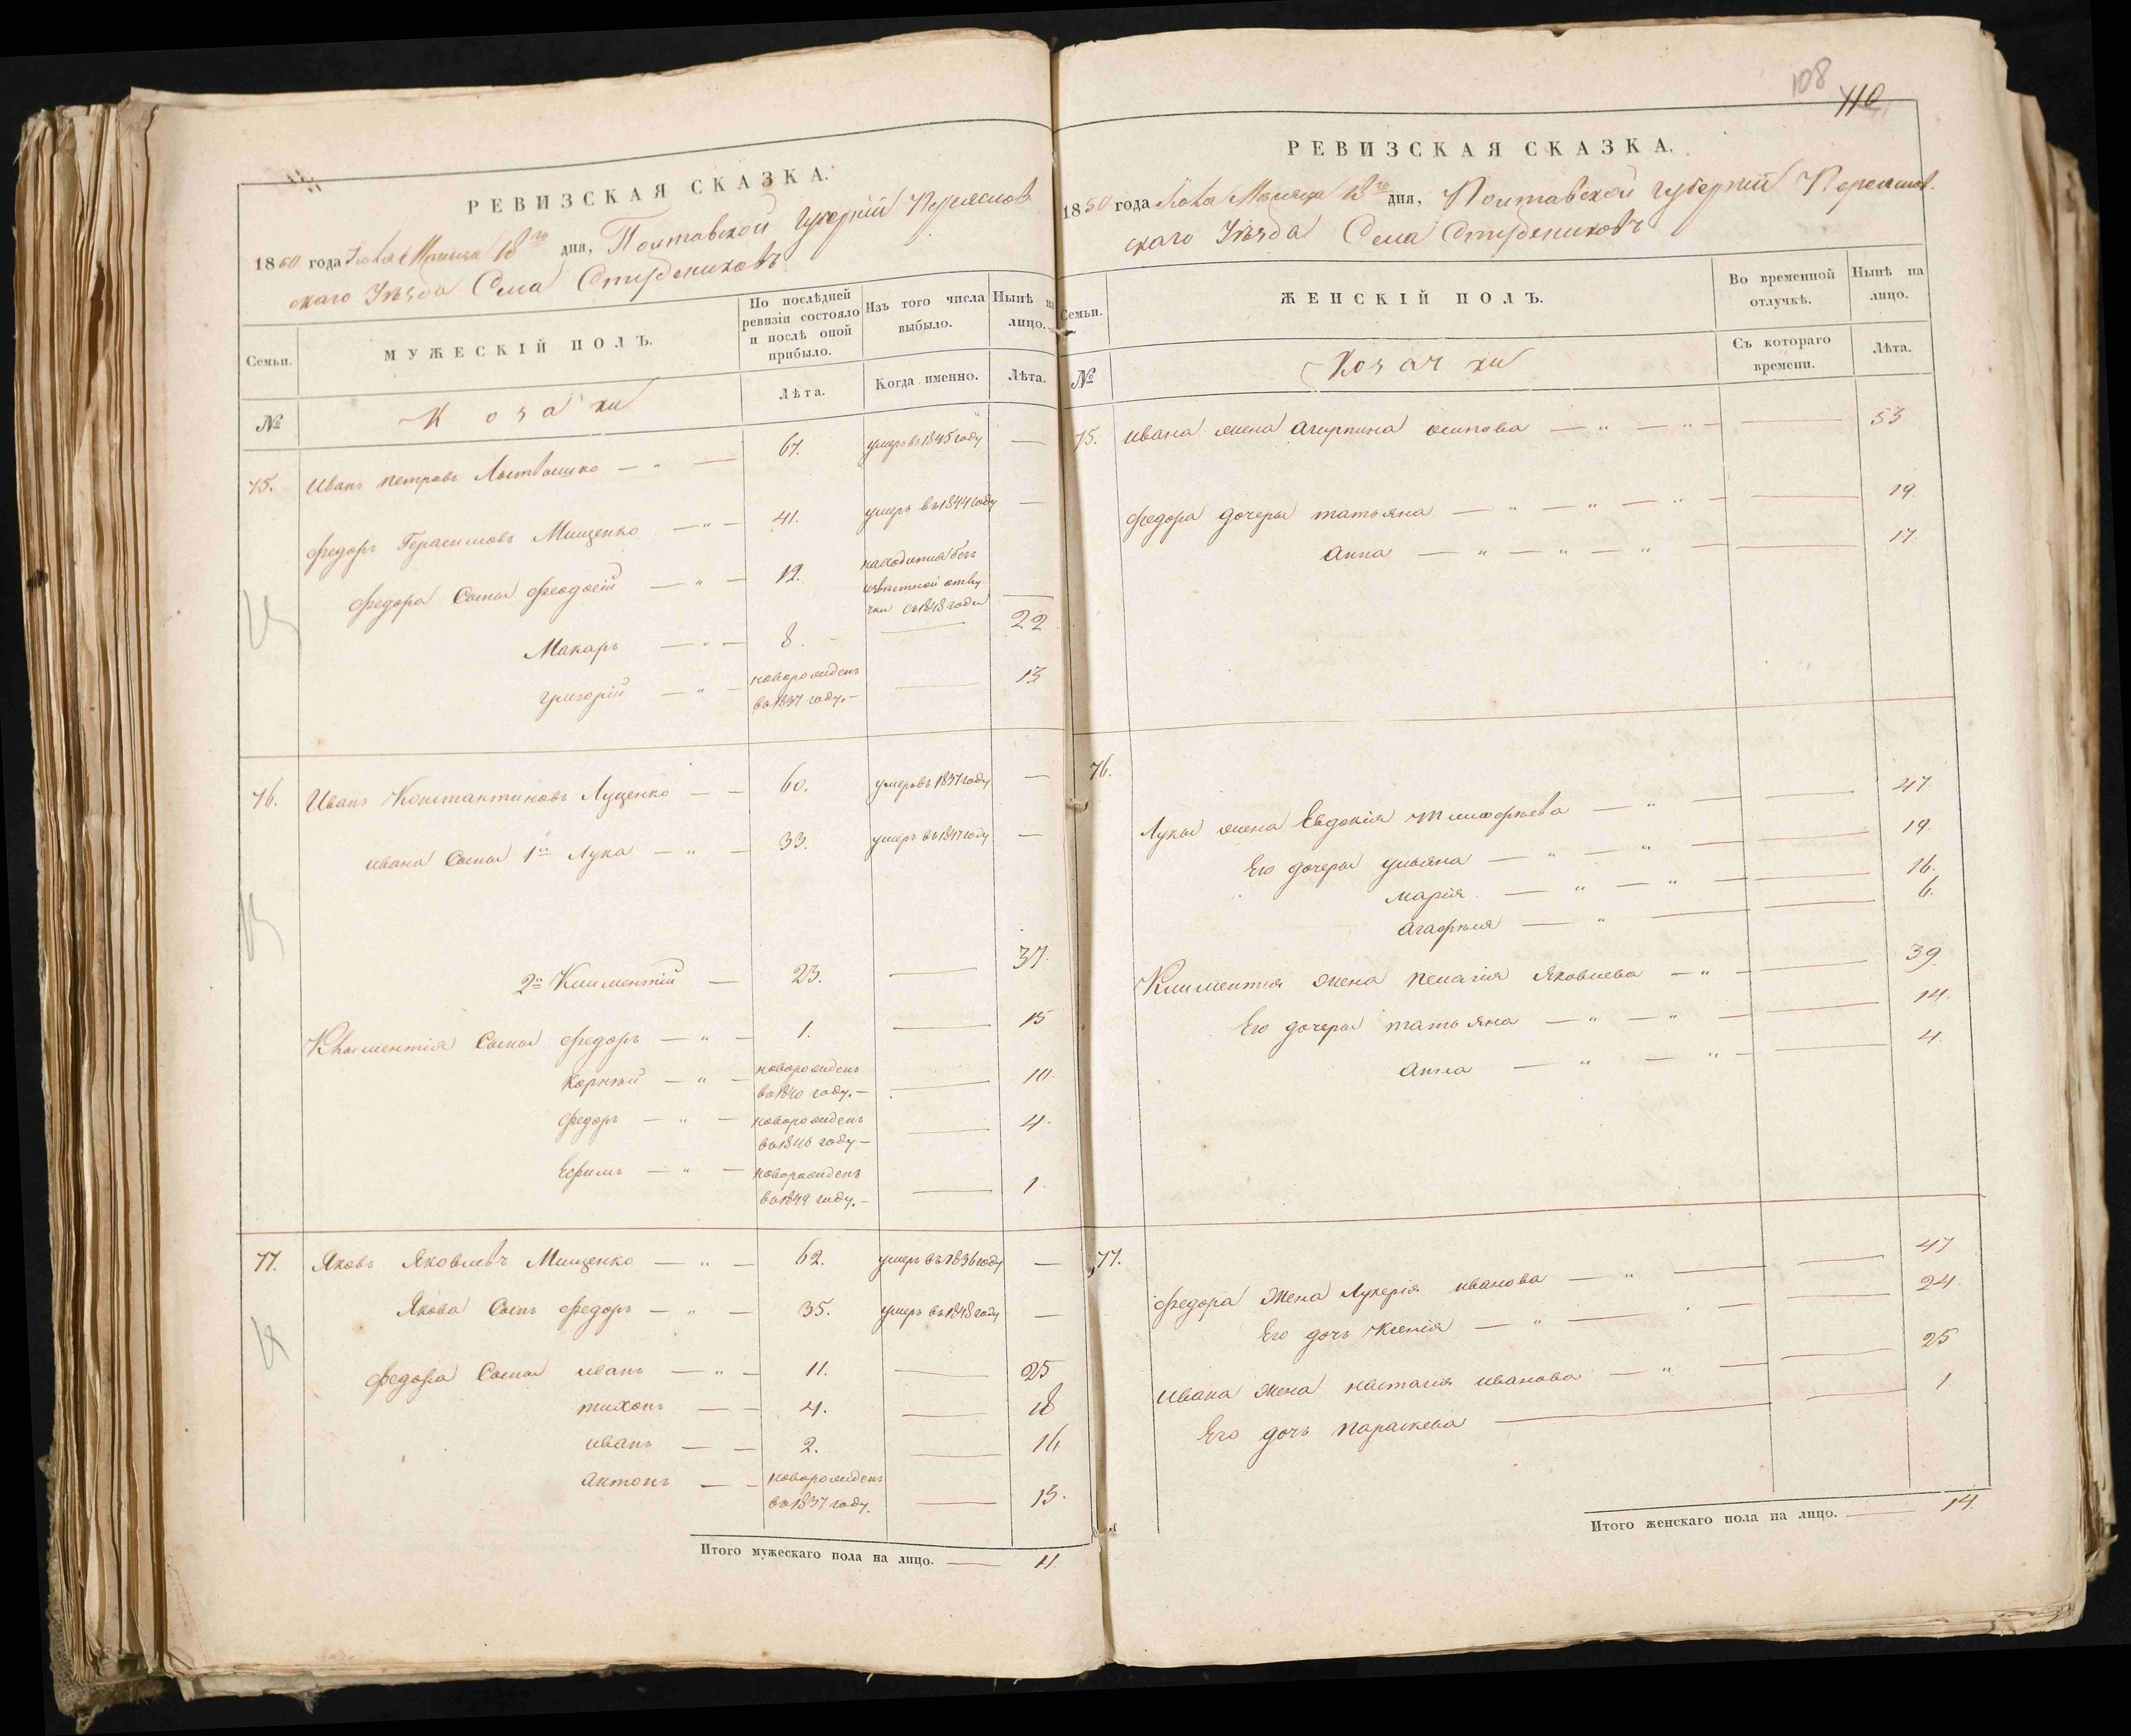 РЕВИЗСКАЯ СКАЗКА.
1850 года Мѣсяца 18го дня, Полтавской Губерніи Переяслов
скаго Уѣзда Села Студениковъ
Семьи.
МУЖЕСКІЙ ПОЛЪ.
По послѣдней ревизіи состояло и послѣ оной прибыло.
Изъ того числа выбыло.
Нынѣ на лицо.
№
Козаки
Лѣта.
Когда именно.
Лѣта.
75. Иванъ петровъ — " — 67. умеръ въ 1845 году —
Федоръ Герасимовъ Мищенко — " — 41. умеръ въ 1844 году —
Федора Сыны Феодосій — " — 12. находится въ безъ
извѣстной отлу
чки съ 1848 года —
Макаръ — " — 8. — 22
григорій — " — новорожденъ
въ 1837 году. — — 13
76. Иванъ Константиновъ Луценко — — 60. умеръ въ 1837 году —
ивана Сыны 1й Лука — " — 33. умеръ въ 1847 году —
2й Климентій — 23. — 37.
Климентія Сыны Федоръ — " — 1. — 15
Корнѣй — " — новорожденъ
въ 1840 году. — — 10
Федоръ — " — новорожденъ
въ 1846 году — — 4.
Ефимъ — " — новорожденъ
въ 1849 году. — — 1.
77. Яковъ Яковлевъ Мищенко — " — 62. умеръ въ 1836 году —
Якова Сынъ Федоръ — " — 35. умеръ въ 1848 году —
Федора Сыны иванъ — " — 11. — 25
тихонъ — — 4. — 18
иванъ — — 2. — 16
антонъ — — новорожденъ
въ 1837 году. — 13.
Итого мужескаго пола на лицо. — 11.
108
110
РЕВИЗСКАЯ СКАЗКА.
1850 года Мѣсяца 18го дня, Полтавской губерніи Переяслов.
скаго Уѣзда Села Студениковъ
Семьи.
ЖЕНСКІЙ ПОЛЪ.
Во временной отлучкѣ.
Нынѣ на лицо.
№
Козачки
Съ котораго времени.
Лѣта.
75. ивана жена агрипина осипова — " — " — — 53
Федора дочеры татьяна — " — " — " — — 19.
анна — " — " — " — — 17.
76.
Луки жена Евдокія тимофѣева — " — — 47
Его дочеры ульяна — " — " — — 19.
марія — " — " — — 16.
агафія — " — — 6.
Климентія жена пелагія Яковлева — " — — 39
Его дочеры татьяна — " — " — — 14.
анна — " — " — — 4.
77.
Федора Жена Лукерія иванова — " — — 47
Его дочь Ксенія — " — — 24.
ивана Жена настасія иванова — " — — 25
Его дочь параскева — — 1.
Итого женскаго пола на лицо. — 14.